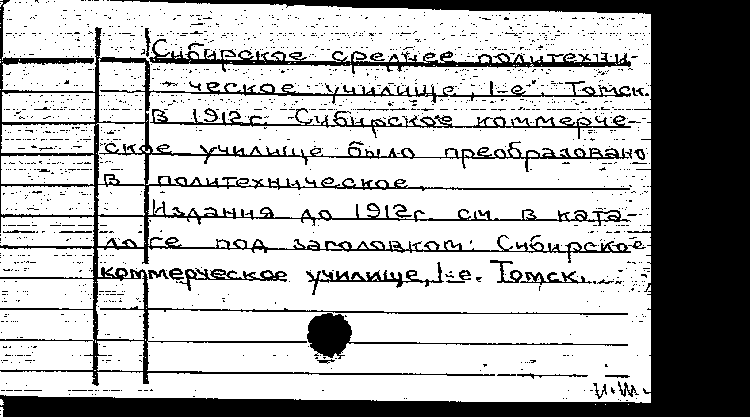 Сибирское среднее политехни-
ческое училище, 1-е. Томск.
В 1912г. Сибирское коммерче-
ское училище было преобразовано
в политехническое.
Издания до 1912г. см. в ката-
логе под заголовком: Сибирское
коммерческое училище, 1-е. Томск.